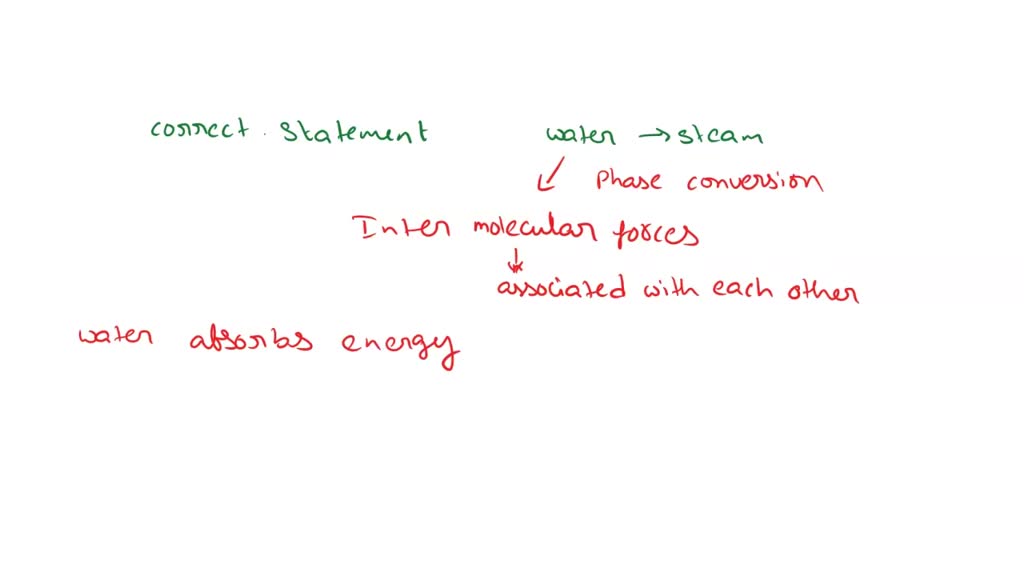 correct. Statement water → steam
Phase conversion
Inter molecular forces
associated with each other
water absorbs energy